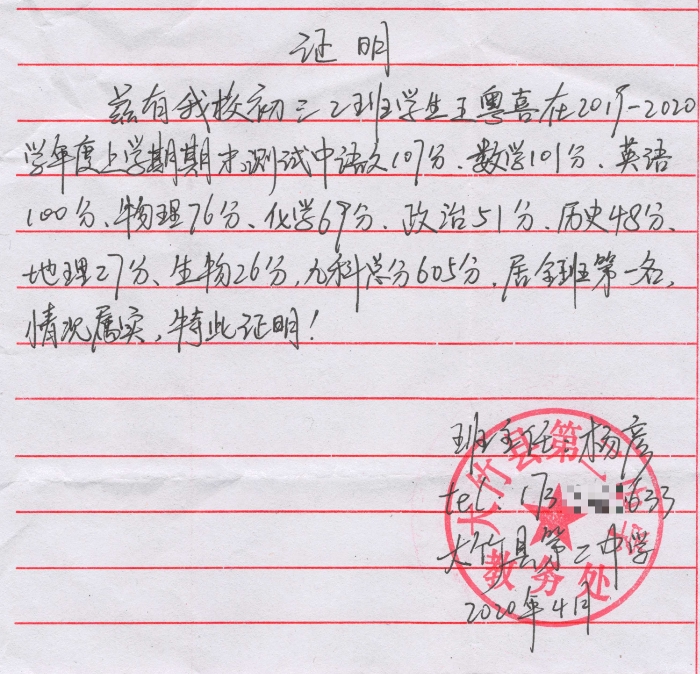 证明
兹有我校初三2班学生王粤喜在2019-2020
学年度上学期期末测试中语文107分、数学101分、英语
100分、物理76分、化学69分、政治51分、历史48分、
地理27分、生物26分，九科总分605分，居全班第一名，
情况属实，特此证明！
班主任：杨彦
tel：173 633
大竹县第二中学
2020年4月
大竹县第二中学
教务处